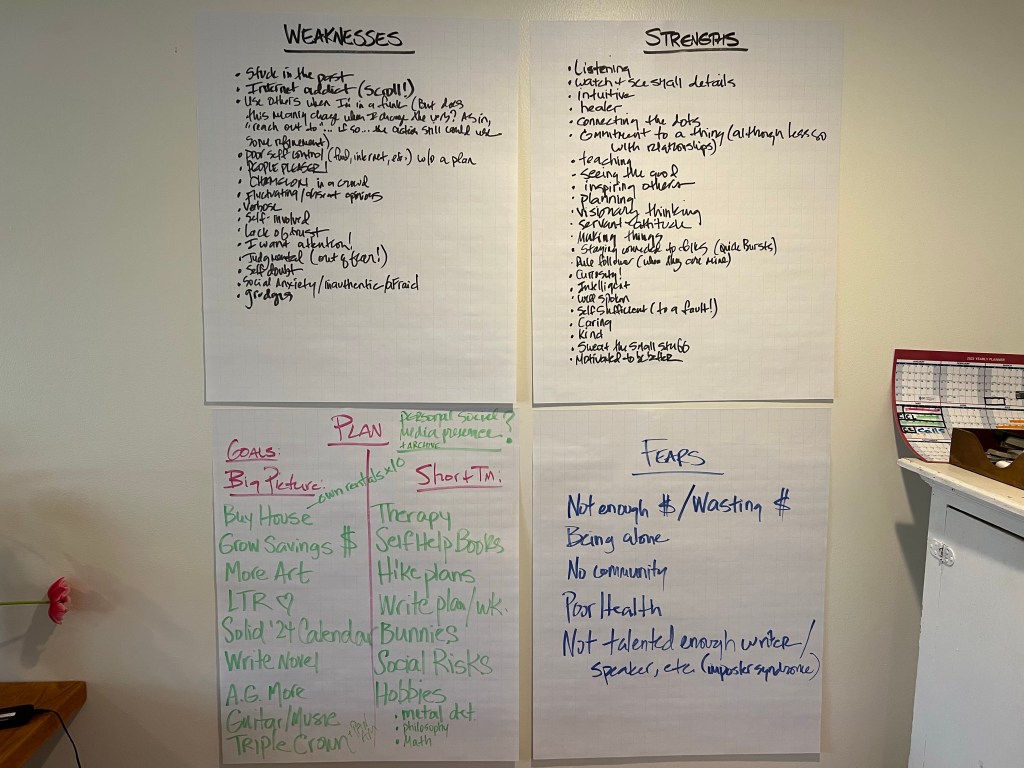 WEAKNESSES
• Stuck in the past
• Internet addict (scroll!)
• Use others when I'm in a funk (But does
this meaning change when I change the verb? As in,
"reach out to"... if so... the action still could use
some refinement)
• poor self control (food, internet, etc.) w/o a plan
• PEOPLE PLEASER!
• CHAMELEON in a crowd
• Fluctuating/absent opinions
• Verbose
• Self-involved
• Lack of trust
• I want attention!
• Judgmental (out of fear!)
• Self doubt
• Social Anxiety/inauthentic/afraid
• grudges
STRENGTHS
• Listening
• watch + see small details
• intuitive
• healer
• connecting the dots
• Commitment to a thing (although less so
with relationships)
• teaching
• seeing the good
• inspiring others
• planning
• visionary thinking
• servant-attitude
• Making things
• Staying connected to folks (quick Bursts)
• Rule follower (when they are mine)
• Curiosity!
• Intelligent
• well spoken
• Self Sufficient (to a fault!)
• Caring
• Kind
• Sweat the small stuff
• Motivated to be better
PLAN
personal social
media presence?
+ ARCHIVE
GOALS:
Big Picture:
own rentals x10
Buy House
Grow Savings $
More Art
LTR ♡
Solid '24 Calendar
Write Novel
A.G. More
Guitar/Music
Triple Crown
Short Tm:
Therapy
Self Help Books
Hike plans
Write plan/wk.
Bunnies
Social Risks
Hobbies
• metal dct
• philosophy
• Math
FEARS
Not enough $/Wasting $
Being alone
No community
Poor Health
Not talented enough writer/
speaker, etc. (imposter syndrome)
2022 YEARLY PLANNER